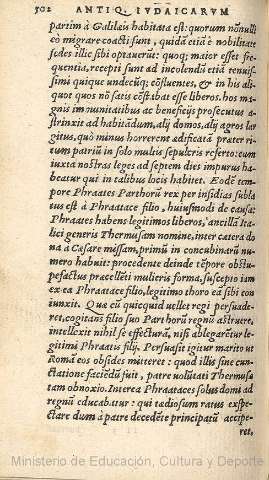 502 ANTIQ. IVDAICARVM
partim à Galilæis habitata est: quorum nõnulli
eò migrare coacti sunt, quidã etiã è nobilitate
sedes illic sibi optauerũt: quoq; maior esset fre-
quentia, recepti sunt ad incolendũ etiã tenuis-
simi quique undecũq; cõfluentes, & in his ali-
quot quos nõ satis cõstabat esse liberos. hos ma-
gnis immunitatibus ac beneficijs prosecutus a-
strinxit ad habitãdum, alij domos, alij agros lar
gitus, quò minus horrerent ædificatã præter ri-
tum patriũ in solo multis sepulcris referto: cum
iuxta nostras leges ad septem dies impurus ha-
beatur qui in talibus locis habitet. Eodẽ tem-
pore Phraates Parthorũ rex per insidias subla
tus est à Phraatace filio, huiusmodi de causa:
Phraates habens legitimos liberos, ancillã Ita-
lici generis Thermusam nomine, inter cætera do
na à Cæsare missam, primũ in concubinarũ nu-
mero habuit: procedente deinde tẽpore obstu-
pefactus præcellẽti mulieris forma, suscepto iam
ex ea Phraatace filio, legitimo thoro eã sibi con
iunxit. Quæ cũ quicquid uellet regi persuade-
ret, cogitãs filio suo Parthorũ regnũ astruere,
intellexit nihil se effecturã, nisi ablegarẽtur le-
gitimi Phraatis filij. Persuasit igitur marito ut
Romã eos obsides mitteret: quod illis sine cun-
ctatione faciẽdũ fuit, patre uolũtati Thermusæ
tam obnoxio. Interea Phraataces solus domi ad
regnũ educabatur: qui tædiosum ratus expe-
ctare dum à patre decedẽte principatũ accipe-
ret,
Ministerio de Educación, Cultura y Deporte